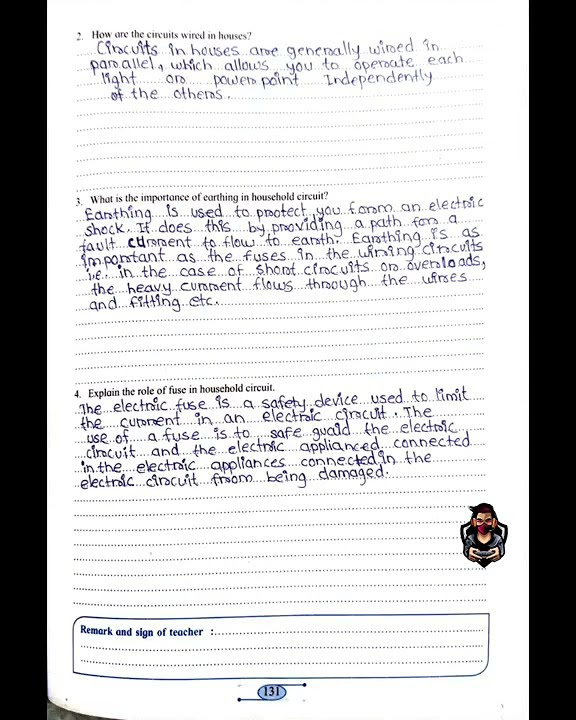 2. How are the circuits wired in houses?
Circuits in houses are generally wired in
parallel, which allows you to operate each
light or power point Independently
of the others.
3. What is the importance of earthing in household circuit?
Earthing is used to protect you form an electric
shock. It does this by providing a path for a
fault current to flow to earth. Earthing is as
important as the fuses in the wiring circuits
i.e. in the case of short circuits or overloads,
the heavy current flows through the wires
and fitting etc.
4. Explain the role of fuse in household circuit.
The electric fuse is a safety device used to limit
the current in an electric circuit. The
use of a fuse is to safe guald the electric
circuit and the electric applianced connected
in the electric appliances connected in the
electric circuit from being damaged.
Remark and sign of teacher :
131